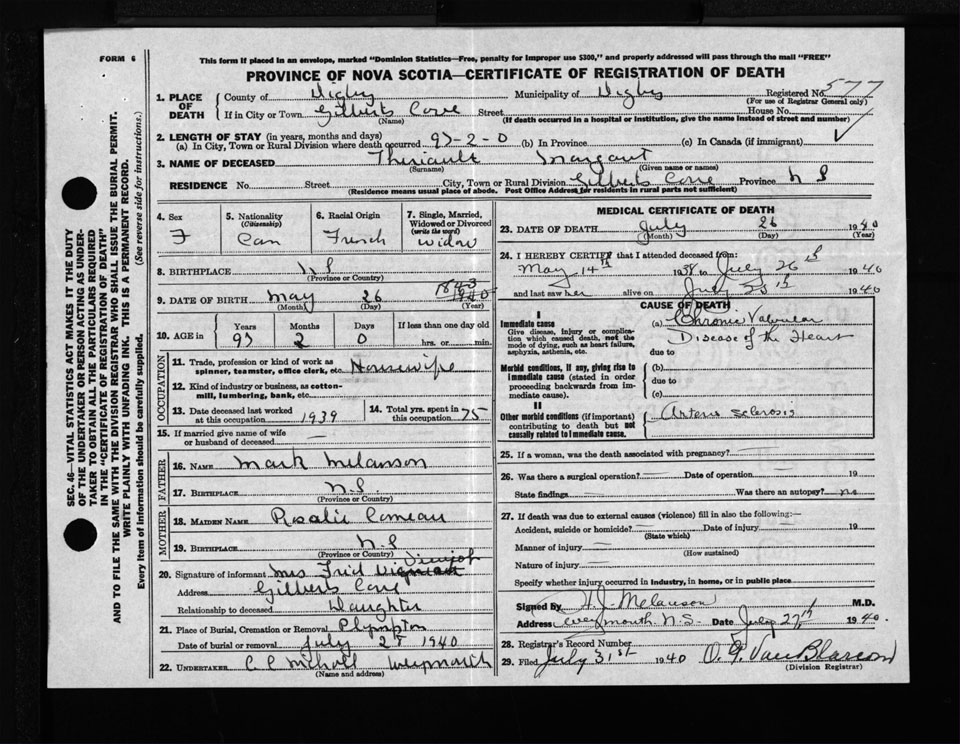 FORM 6
This form if placed in an envelope, marked "Dominion Statistics—Free, penalty for improper use $300," and properly addressed will pass through the mail "FREE"
PROVINCE OF NOVA SCOTIA—CERTIFICATE OF REGISTRATION OF DEATH
SEC. 46—VITAL STATISTICS ACT MAKES IT THE DUTY
OF THE UNDERTAKER OR PERSON ACTING AS UNDER-
TAKER TO OBTAIN ALL THE PARTICULARS REQUIRED
IN THE "CERTIFICATE OF REGISTRATION OF DEATH"
AND TO FILE THE SAME WITH THE DIVISION REGISTRAR WHO SHALL ISSUE THE BURIAL PERMIT.
WRITE PLAINLY WITH UNFADING INK. THIS IS A PERMANENT RECORD.
Every item of information should be carefully supplied. (See reverse side for instructions.)
1. PLACE OF DEATH
County of Digby Municipality of Digby Registered No. 577
(For use of Registrar General only)
If in City or Town Gilberts Cove Street House No.
(Name) (If death occurred in a hospital or institution, give the name instead of street and number)
2. LENGTH OF STAY (in years, months and days)
(a) In City, Town or Rural Division where death occurred 97-2-0 (b) In Province (c) In Canada (if immigrant)
3. NAME OF DECEASED Theriault Margaret
(Surname) (Given name or names)
RESIDENCE No. Street City, Town or Rural Division Gilberts Cove Province N S
(Residence means usual place of abode. Post Office Address for residents in rural parts not sufficient)
4. Sex F
5. Nationality (Citizenship) Can
6. Racial Origin French
7. Single, Married, Widowed or Divorced (write the word) Widow
8. BIRTHPLACE N S
(Province or Country)
9. DATE OF BIRTH May 26 1843 1940
(Month) (Day) (Year)
10. AGE in Years 97 Months 2 Days 0 If less than one day old hrs. or min.
OCCUPATION
11. Trade, profession or kind of work as spinner, teamster, office clerk, etc. Housewife
12. Kind of industry or business, as cotton-mill, lumbering, bank, etc.
13. Date deceased last worked at this occupation 1939
14. Total yrs. spent in this occupation 75
15. If married give name of wife or husband of deceased —
FATHER
16. NAME Mark Melanson
17. BIRTHPLACE N.S.
(Province or Country)
MOTHER
18. MAIDEN NAME Rosalie Comeau
19. BIRTHPLACE N.S
(Province or Country)
20. Signature of informant Mrs Fred
Address Gilberts Cove
Relationship to deceased Daughter
21. Place of Burial, Cremation or Removal Plympton
Date of burial or removal July 28 1940
22. UNDERTAKER Weymouth
(Name and address)
MEDICAL CERTIFICATE OF DEATH
23. DATE OF DEATH July 26 1940
(Month) (Day) (Year)
24. I HEREBY CERTIFY that I attended deceased from:
May 14th 1938 to July 26th 1940
and last saw her alive on July 25th 1940
CAUSE OF DEATH
I
Immediate cause
Give disease, injury or complication which caused death, not the mode of dying, such as heart failure, asphyxia, asthenia, etc.
(a) Chronic Valvular Disease of the Heart
due to
Morbid conditions, if any, giving rise to immediate cause (stated in order proceeding backwards from immediate cause).
(b)
due to
(c)
II
Other morbid conditions (if important) contributing to death but not causally related to immediate cause.
Arterio sclerosis
25. If a woman, was the death associated with pregnancy? —
26. Was there a surgical operation? — Date of operation — 19
State findings — Was there an autopsy? no
27. If death was due to external causes (violence) fill in also the following:—
Accident, suicide or homicide? — Date of injury — 19
(State which)
Manner of injury —
(How sustained)
Nature of injury —
Specify whether injury occurred in industry, in home, or in public place
Signed by H.J. Melanson M.D.
Address Weymouth N.S. Date July 27th 1940.
28. Registrar's Record Number
29. Filed July 31st 1940 O. Van Blarcom
(Division Registrar)